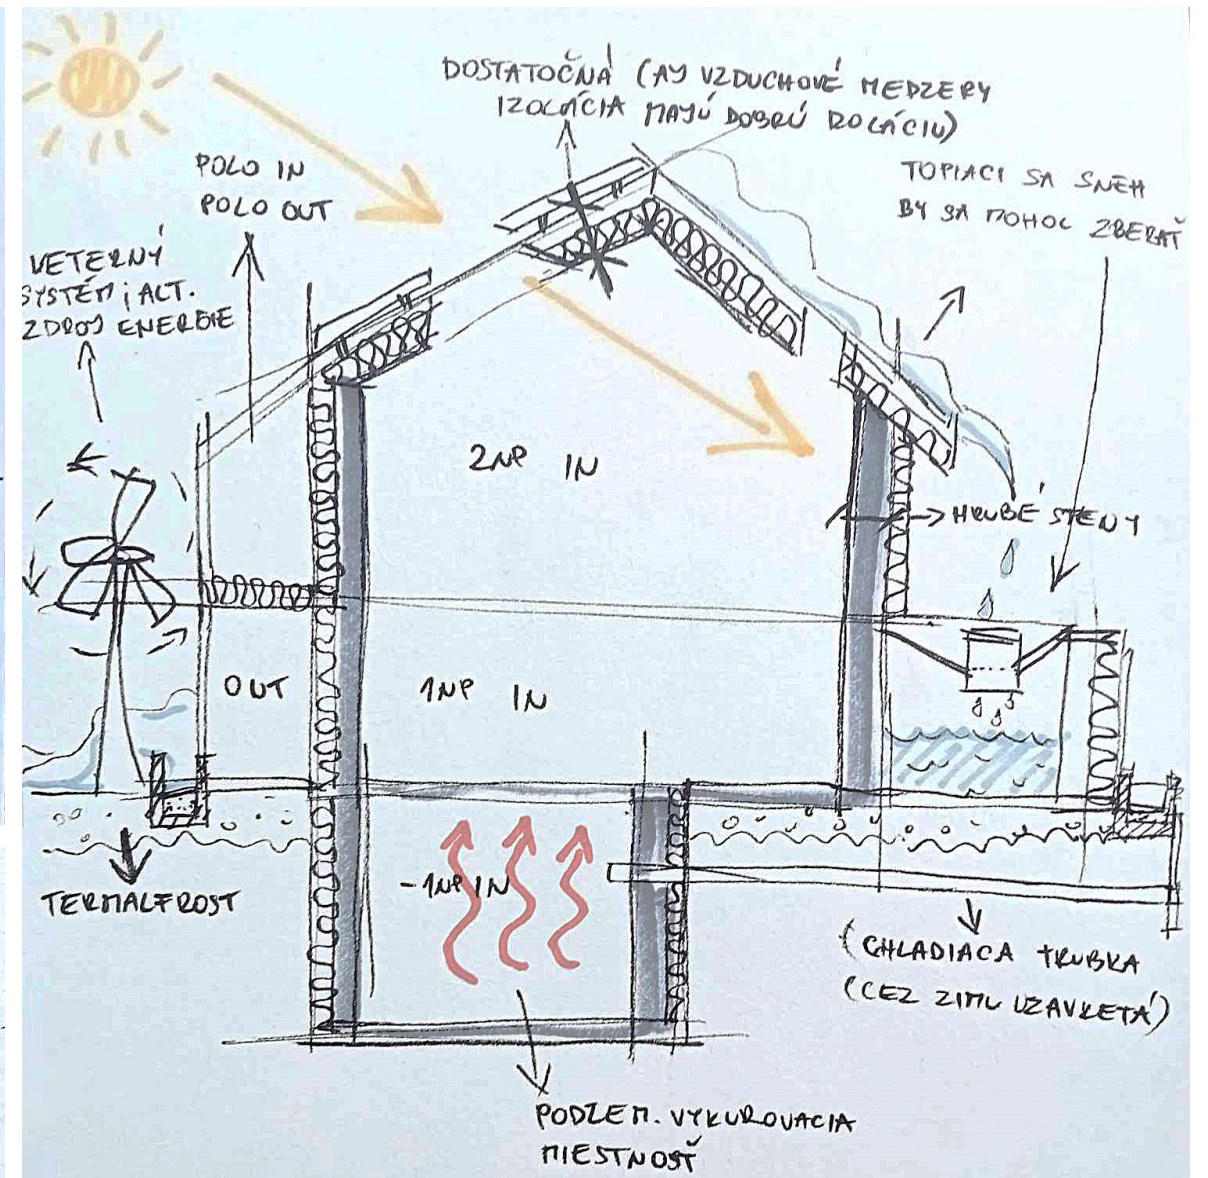 DOSTATOČNÁ (AJ VZDUCHOVÉ MEDZERY
IZOLÁCIA MAJÚ DOBRÚ ROLÁCIU)
POLO IN
POLO OUT
TOPIACI SA SNEH
BY SA MOHOL ZBERAŤ
VETERNÝ
SYSTÉM; ALT.
ZDROJ ENERGIE
2NP IN
HRUBÉ STENY
OUT
1NP IN
-1NP IN
TERMALFROST
(CHLADIACA TRUBKA
(CEZ ZIMU UZAVRETÁ)
PODZEM. VYKUROVACIA
MIESTNOSŤ